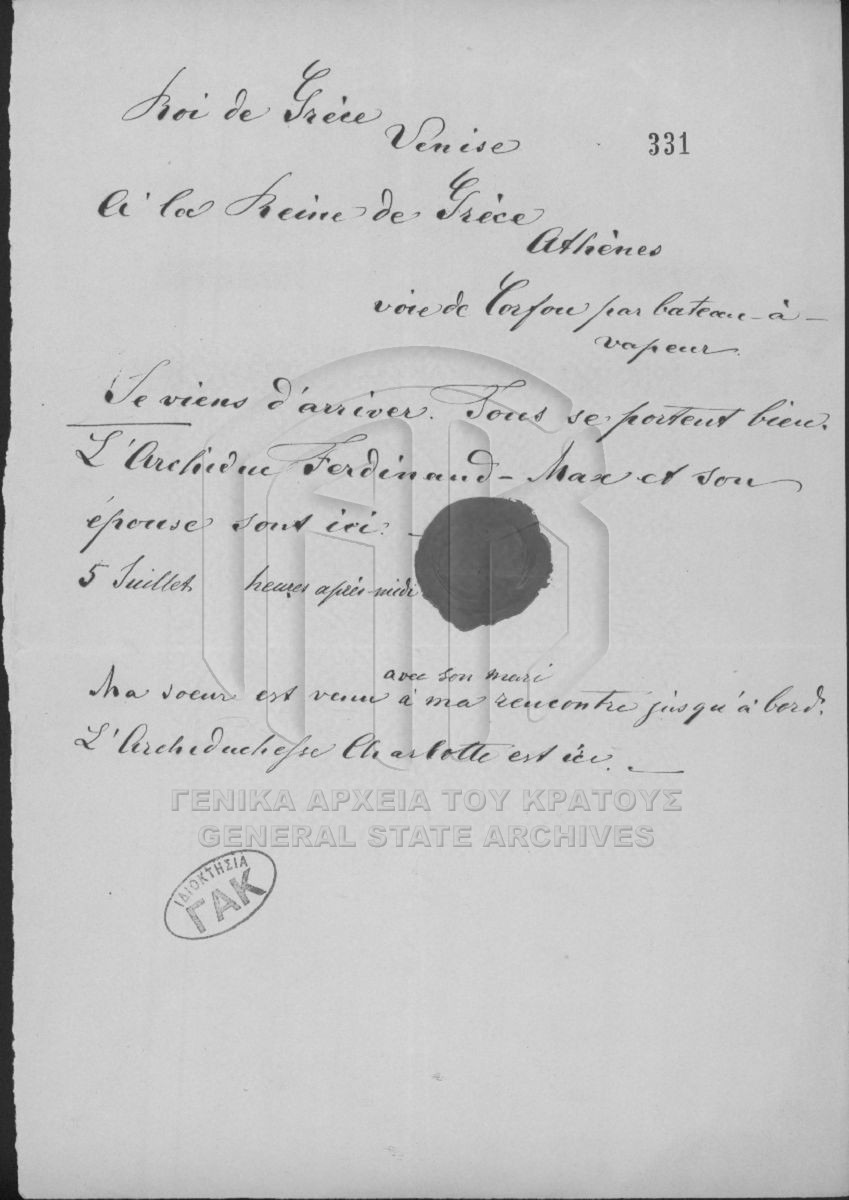 Roi de Grèce
Venise
331
A la Reine de Grèce
Athènes
voie de Corfou par bateau-à-
vapeur.
Je viens d'arriver. Tous se portent bien.
L'Archiduc Ferdinand-Max et son
épouse sont ici. —
5 Juillet heures après-midi
avec son mari
Ma soeur est venu à ma rencontre jusqu'à bord.
L'Archiduchesse Charlotte est ici. —
ΓΕΝΙΚΑ ΑΡΧΕΙΑ ΤΟΥ ΚΡΑΤΟΥΣ
GENERAL STATE ARCHIVES
ΙΔΙΟΚΤΗΣΙΑ
ΓΑΚ